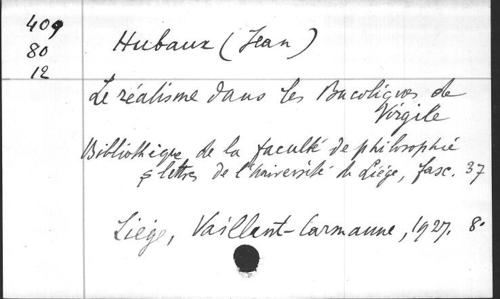 409
80
12
Hubaux (Jean)
Le réalisme dans les Bucoliques de
Virgile
Bibliothèque de la faculté de philosophie
& lettres de l'Université de Liége, fasc. 37
Liége, Vaillant-Carmanne, 1927. 8°